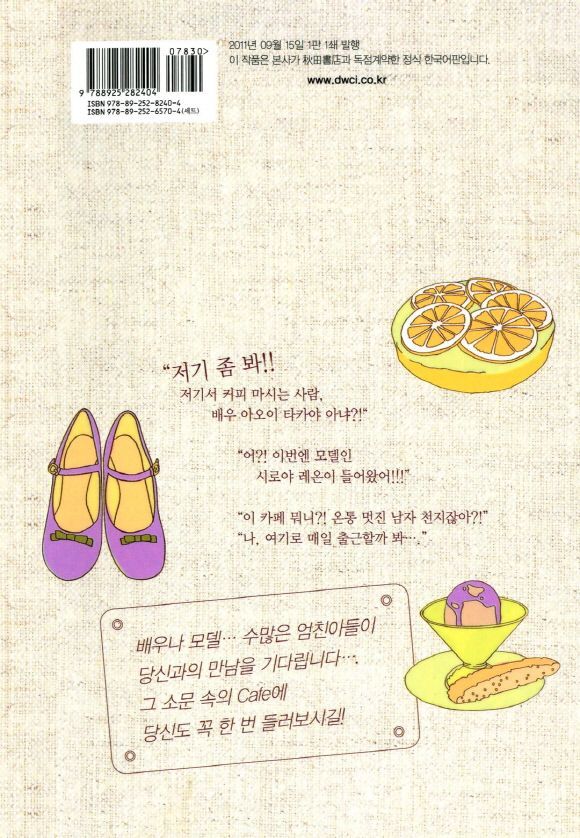 07830>
9 788925 282404
ISBN 978-89-252-8240-4
ISBN 978-89-252-6570-4(세트)
2011년 09월 15일 1판 1쇄 발행
이 작품은 본사가 秋田書店과 독점계약한 정식 한국어판입니다.
www.dwci.co.kr
“저기 좀 봐!!
저기서 커피 마시는 사람,
배우 아오이 타카야 아냐?!“
“어?! 이번엔 모델인
시로야 레온이 들어왔어!!!”
“이 카페 뭐니?! 온통 멋진 남자 천지잖아?!”
“나, 여기로 매일 출근할까 봐….”
배우나 모델… 수많은 엄친아들이
당신과의 만남을 기다립니다….
그 소문 속의 Cafe에
당신도 꼭 한 번 들러보시길!